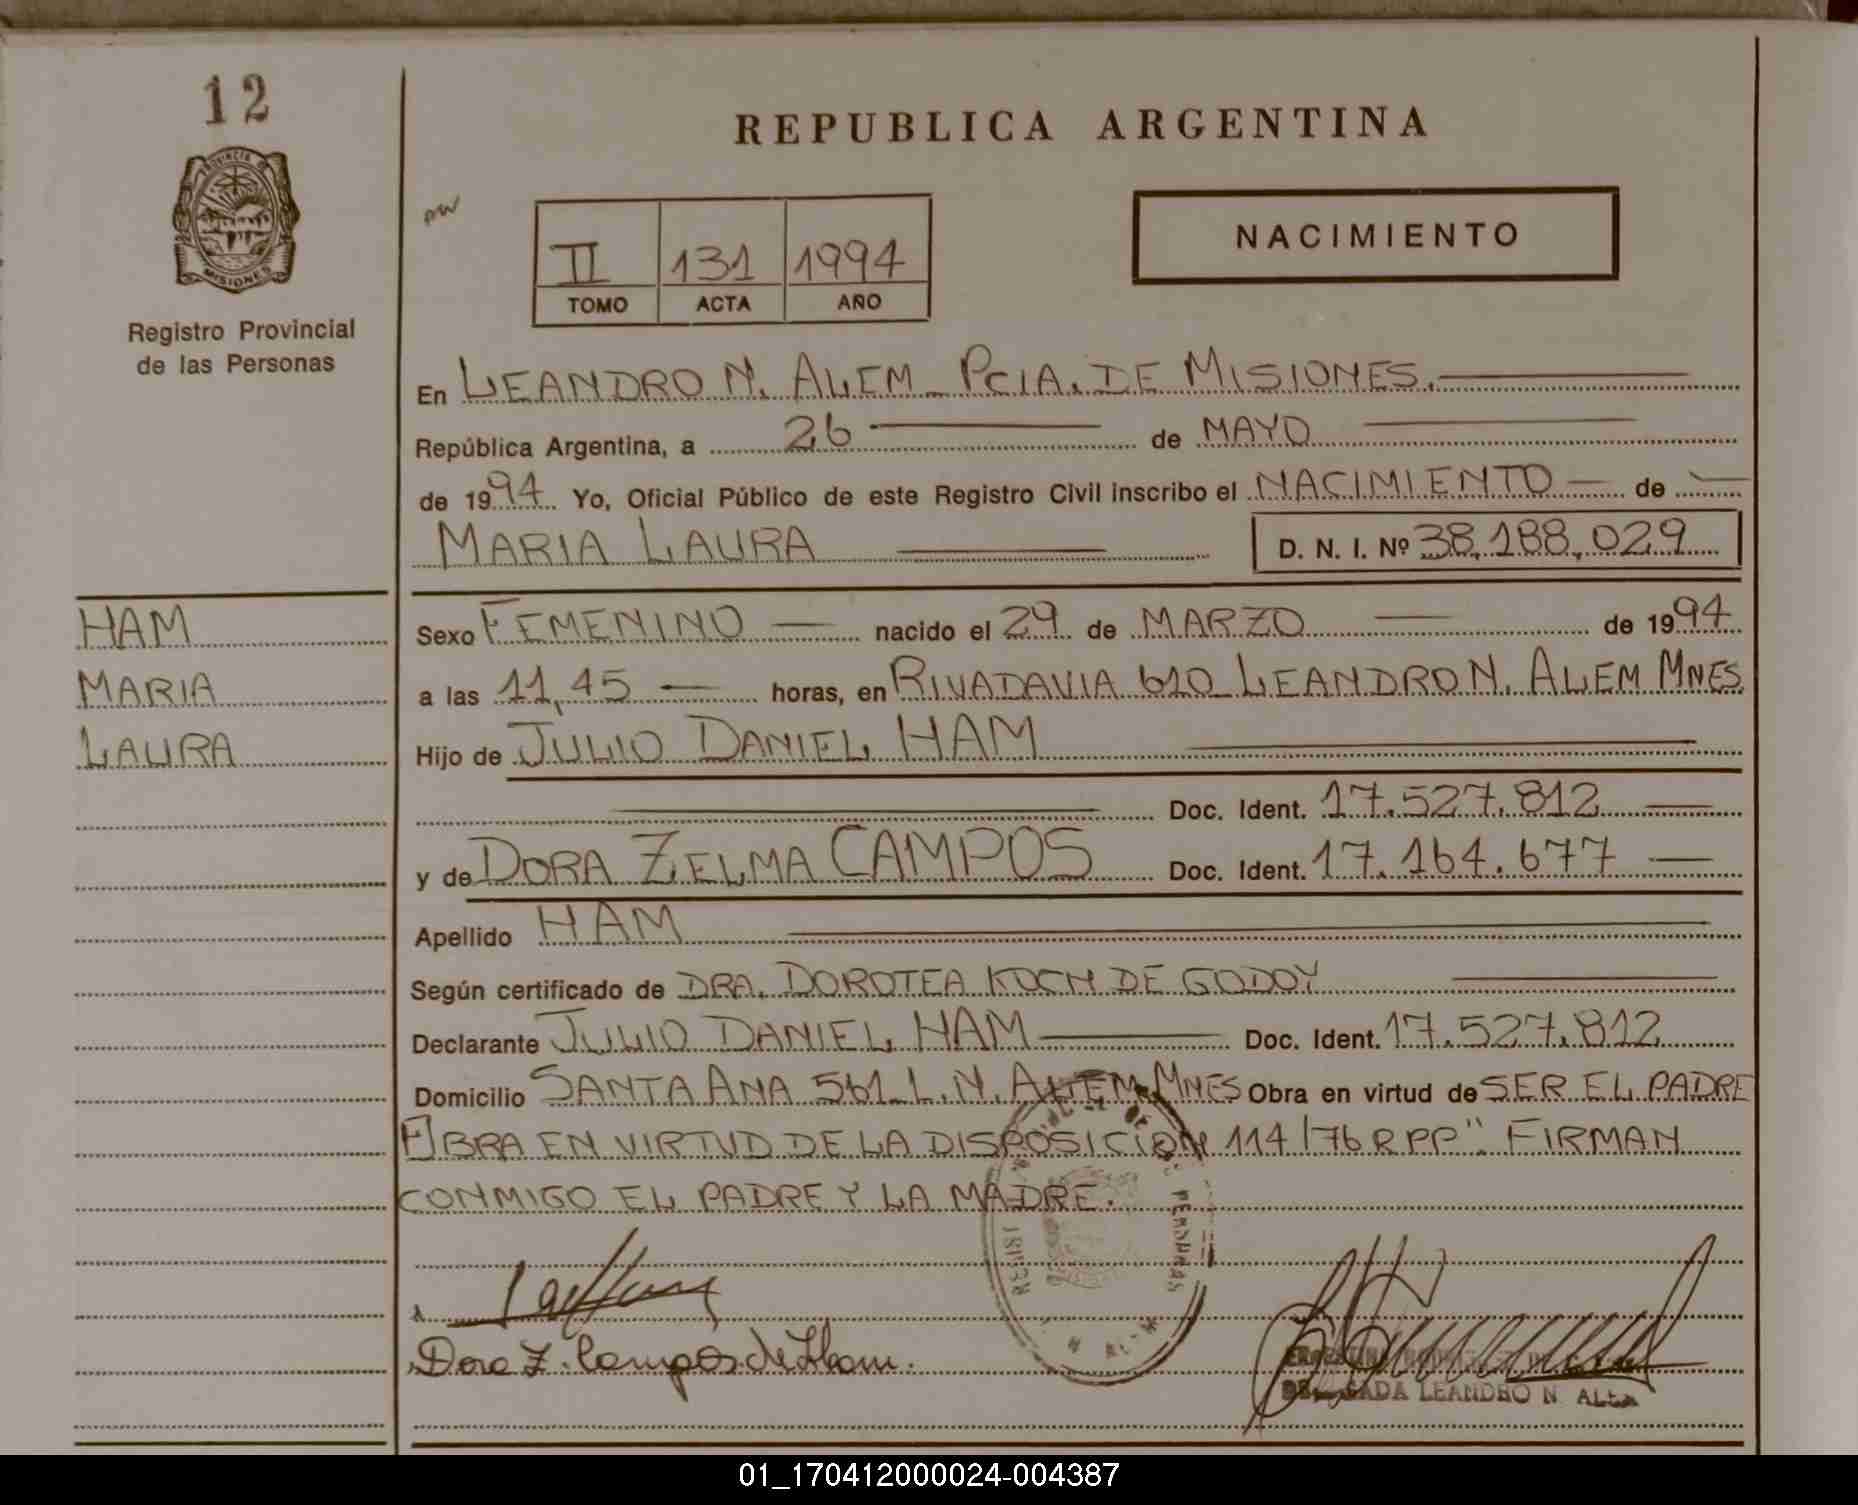 12
REPUBLICA ARGENTINA
PROVINCIA DE
MISIONES
II 131 1994
TOMO ACTA AÑO
NACIMIENTO
Registro Provincial
de las Personas
En LEANDRO N. ALEM - PCIA. DE MISIONES.
República Argentina, a 26 de MAYO
de 1994. Yo, Oficial Público de este Registro Civil inscribo el NACIMIENTO de
MARIA LAURA D. N. I. Nº 38.188.029
HAM
MARIA
LAURA
Sexo FEMENINO nacido el 29 de MARZO de 1994
a las 11,45 horas, en RIVADAVIA 610 - LEANDRO N. ALEM MNES.
Hijo de JULIO DANIEL HAM
Doc. Ident. 17.527.812
y de DORA ZELMA CAMPOS Doc. Ident. 17.164.677
Apellido HAM
Según certificado de DRA. DOROTEA KOCH DE GODOY
Declarante JULIO DANIEL HAM Doc. Ident. 17.527.812
Domicilio SANTA ANA 561 - L. N. ALEM MNES Obra en virtud de SER EL PADRE
OBRA EN VIRTUD DE LA DISPOSICION 114/76 RPP". FIRMAN
CONMIGO EL PADRE Y LA MADRE.
Dora Z. Campos de Ham.
DELEGADA LEANDRO N ALEM
01_170412000024-004387